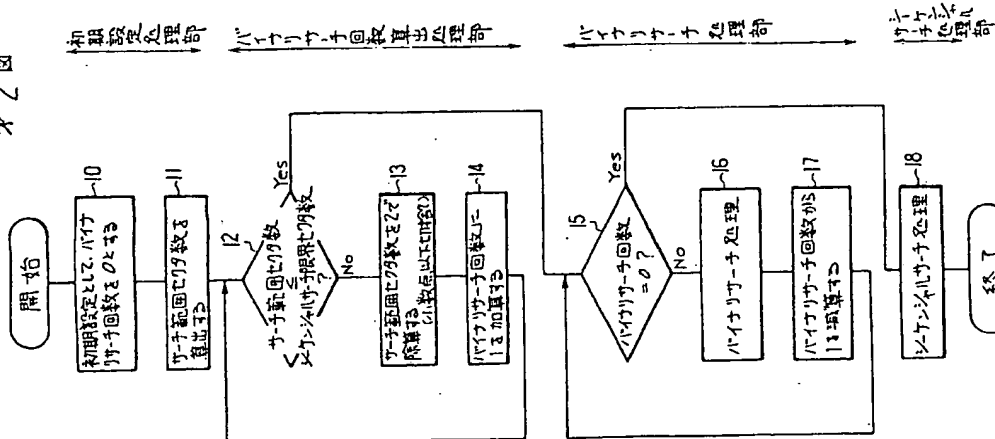 才2図
初期設定処理部
バイナリサーチ回数算出処理部
バイナリサーチ処理部
シーケンシャルサーチ処理部
開始
初期設定として、バイナ
リサーチ回数を0とする
10
サーチ範囲セクタ数を
算出する
11
12
サーチ範囲セクタ数
≤
シーケンシャルサーチ限界セクタ数
?
Yes
No
サーチ範囲セクタ数を2で
除算する
(小数点以下切捨て)
13
バイナリサーチ回数に
1を加算する
14
15
バイナリサーチ回数
=0?
Yes
No
バイナリサーチ処理
16
バイナリサーチ回数から
1を減算する
17
シーケンシャルサーチ処理
18
終了